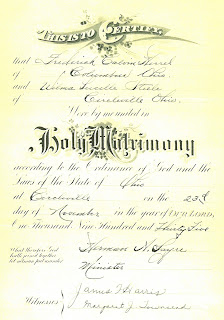 THIS IS TO CERTIFY,
that Frederick Calvin Harrel
of Columbus Ohio.
and Wilma Lucille Steele
of Circleville Ohio.
Were by me united in
Holy Matrimony
according to the Ordinance of God and the
Laws of the State of Ohio
at Circleville on the 23rd
day of November in the year of OUR LORD,
One Thousand Nine Hundred and Thirty Five
What therefore God
hath joined together
let no man put asunder
Herman A.
Minister
Witnesses
James Harris
Margaret J. Townsend